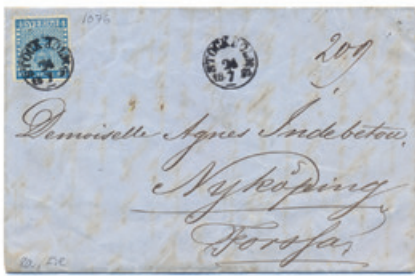 1076
STOCKHOLM
24
7
STOCKHOLM
24
7
209
Demoiselle Agnes Indebetou
Nyköping
Forssa